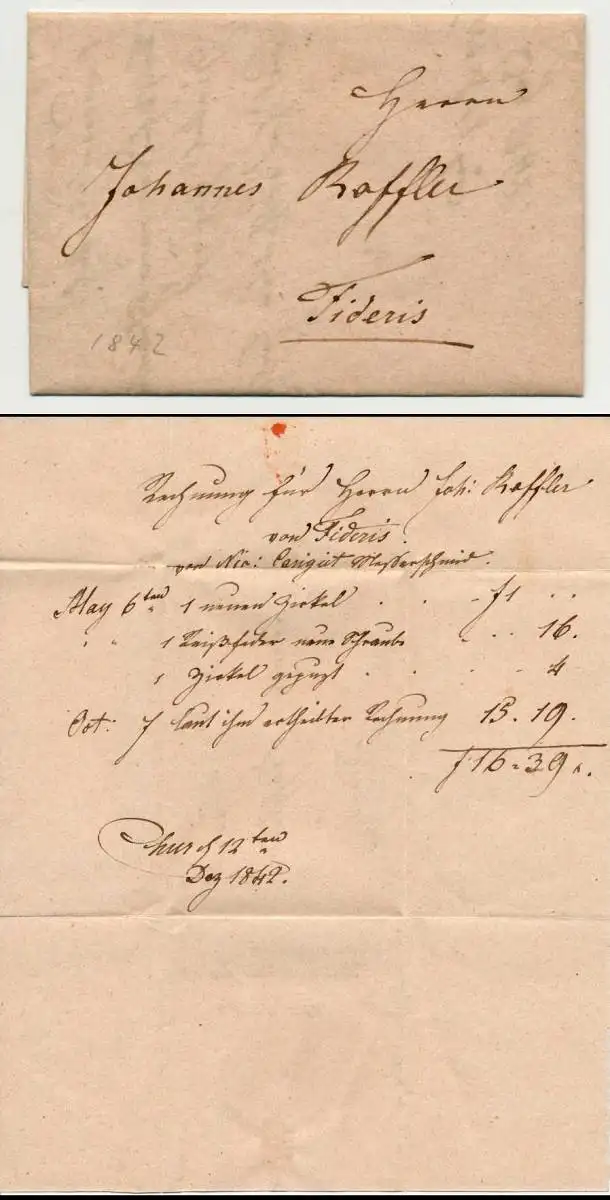 Herrn
Johannes Roffler
Fideris
1842
Rechnung für Herrn Joh: Roffler
von Fideris.
von Nic: Carigiet Messerschmid.
May 6ten 1 neuen Zirkel . . . f 1 . .
" " 1 Reißfeder neue Schraube . . . 16.
1 Zirkel gepuzt . . . . 4
Oct: 7 laut ihm ertheilter Rechnung 15. 19.
f 16 " 39 x.
Chur d 12ten
Dez 1842.